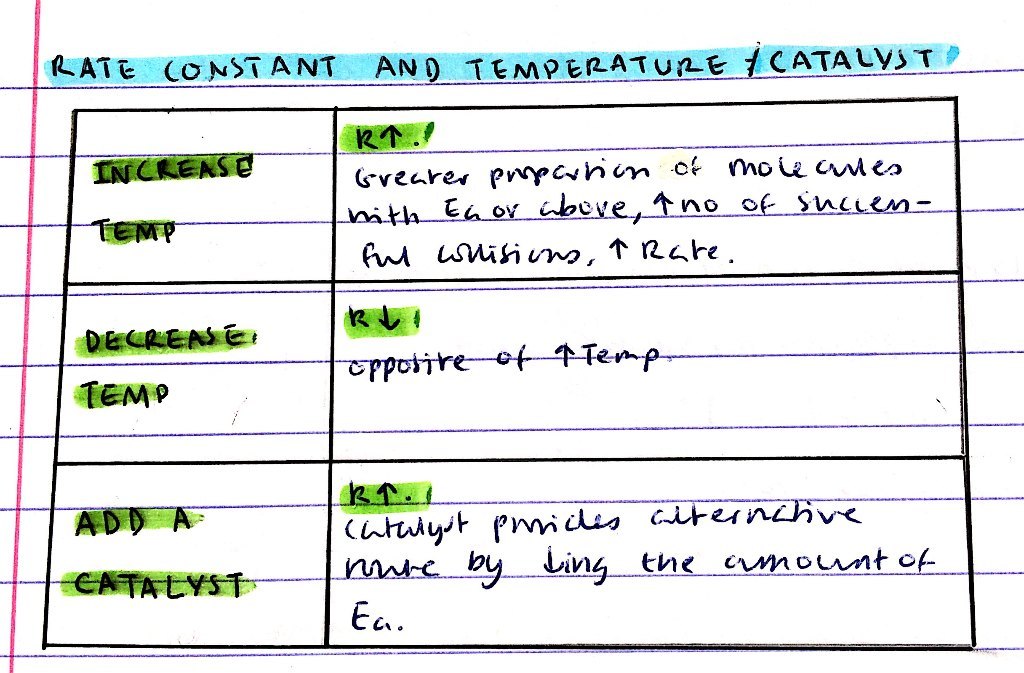 RATE CONSTANT AND TEMPERATURE / CATALYST
INCREASE
TEMP
K↑.
Greater proportion of molecules
with Ea or above, ↑ no of succes-
ful collisions, ↑ Rate.
DECREASE
TEMP
K↓
opposite of ↑ Temp.
ADD A
CATALYST
K↑.
Catalyst provides alternative
route by ↓ing the amount of
Ea.